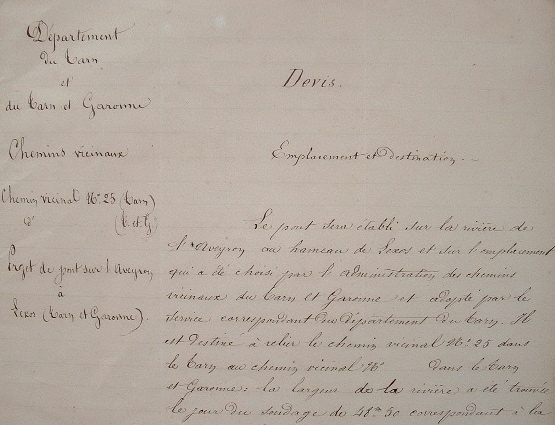 Département
du Tarn
et
du Tarn et Garonne
Chemins vicinaux
Chemin vicinal N° 25 (Tarn)
d° (T. et G)
Projet de pont sur l'Aveyron
à
Lexos (Tarn et Garonne).
Devis.
Emplacement et Destination.
Le pont sera établi sur la rivière de
l'Aveyron au hameau de Lexos et sur l'emplacement
qui a été choisi par l'administration des chemins
vicinaux du Tarn et Garonne et adopté par le
service correspondant du département du Tarn. Il
est destiné à relier le chemin vicinal N° 25 dans
le Tarn au chemin vicinal N° dans le Tarn
et Garonne: la largeur de la rivière a été trouvée
le jour du sondage de 48m 50 correspondant à la